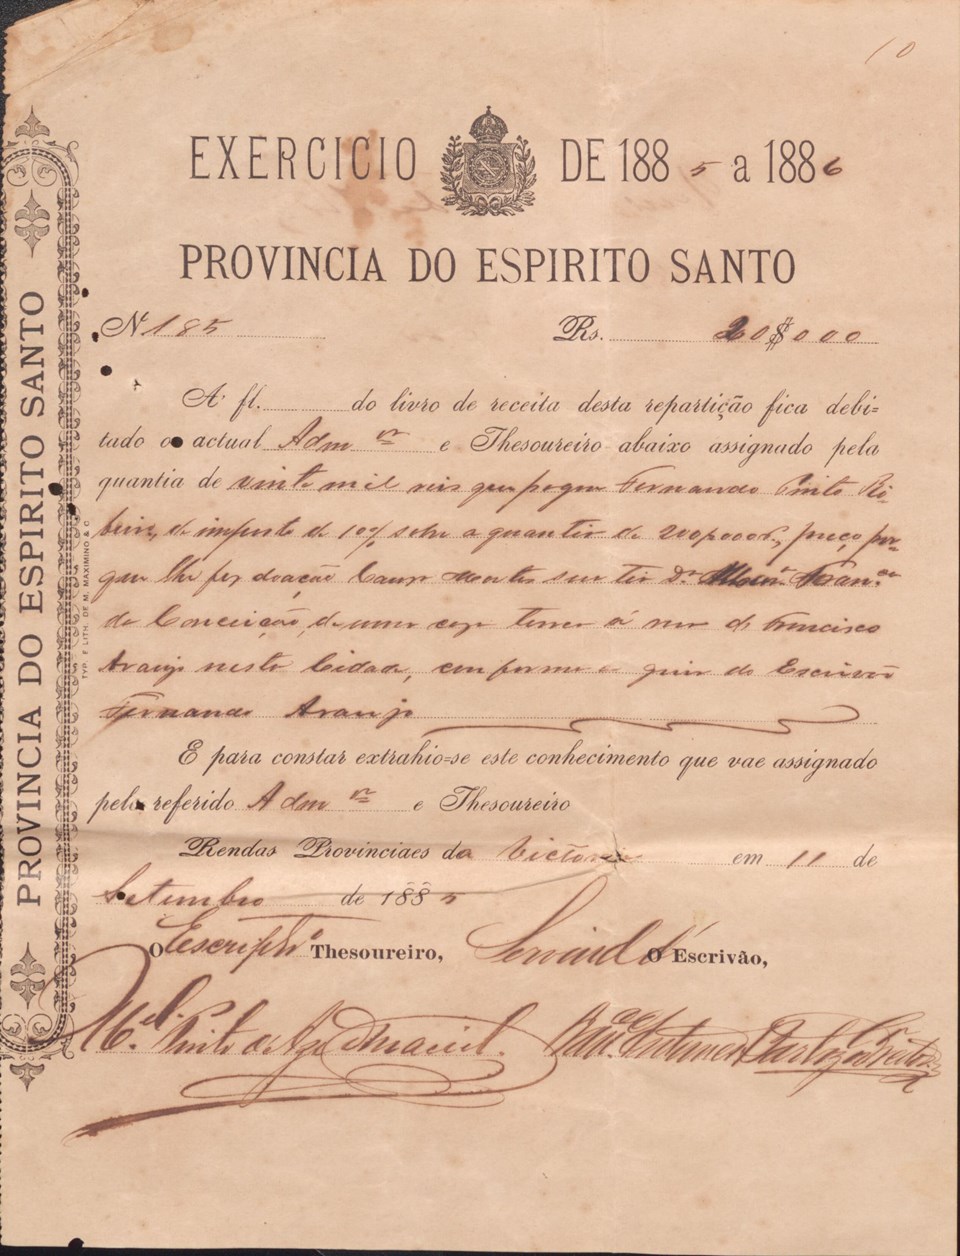 10
EXERCICIO DE 1885 a 1886
PROVINCIA DO ESPIRITO SANTO
N 185 Rs. 20$000
A fl. do livro de receita desta repartição fica debi=
tado o actual Adm.or e Thesoureiro abaixo assignado pela
quantia de vinte mil reis que pagou Fernando Pinto Ri-
beiro, de imposto de 10% sobre a quantia de 200,000, preço por-
que lhe fez doação Causa Mortis sua tia D.
da Conceição, de uma casa terrea á rua de Francisco
Araujo nesta Cidade, conforme a guia do Escrivão
Fernando Araujo
E para constar extrahio-se este conhecimento que vae assignado
pelo referido Adm.or e Thesoureiro
Rendas Provinciaes da Victoria em 11 de
Setembro de 1885
O Thesoureiro, O Escrivão,
M.el Pinto de
PROVINCIA DO ESPIRITO SANTO PROVINCIA DO ESPIRITO SANTO
TYP. E LITH. DE M. MAXIMINO & C.